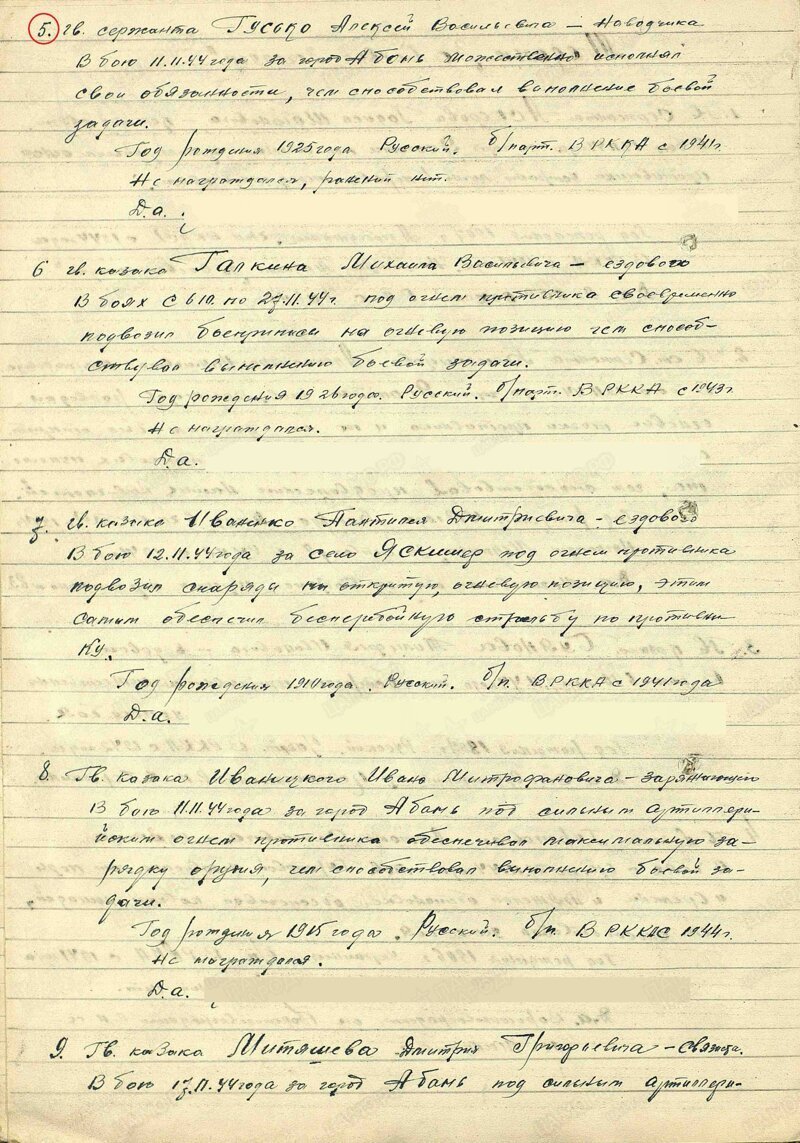 5. гв. сержанта Гусько Алексей Васильевича – Наводчика
В бою 11.11.44 года за город Абонь можественно исполнял
свои обязанности, чем способствовал выполнение боевой
задачи.
Год рождения 1925 года Русский. б/парт. В РККА с 1941г.
Не награждался, ранений нет.
Д.а.
6 гв. казака Галкина Михаила Васильевича – ездового
В боях с 6.10. по 27.11.44г. под огнем противника своевременно
подвозил боеприпасы на огневую позицию чем способ-
ствувал выполнению боевой задачи.
Год рождения 1926 года. Русский. б/парт. В РККА с 1943г.
Не награждался.
Д.а.
7. гв. казака Иваненко Пантилея Дмитриевича – ездового
В бою 12.11.44 года за село Яскишер под огнем противника
подвозил снаряды на открытую, огневую позицию, этим
самым обеспечил бесперебойную стрельбу по противни
ку.
Год рождения 1910 года. Русский. б/п. В РККА с 1941 года
Д.а.
8. Гв. казака Иваницкого Ивана Митрофановича – заряжающего
В бою 11.11.44 года за город Абонь под сильным артиллери-
йским огнем противника обеспечивал максимальную за-
рядку орудия, чем способствовал выполнению боевой за-
дачи.
Год рождения 1915 года. Русский. б/п. В РККА с 1944г.
Не награждался.
Д.а.
9. Гв. казака Митяшева Дмитрия Григорьевича – связиста.
В бою 17.11.44 года за город Абонь под сильным артиллери-